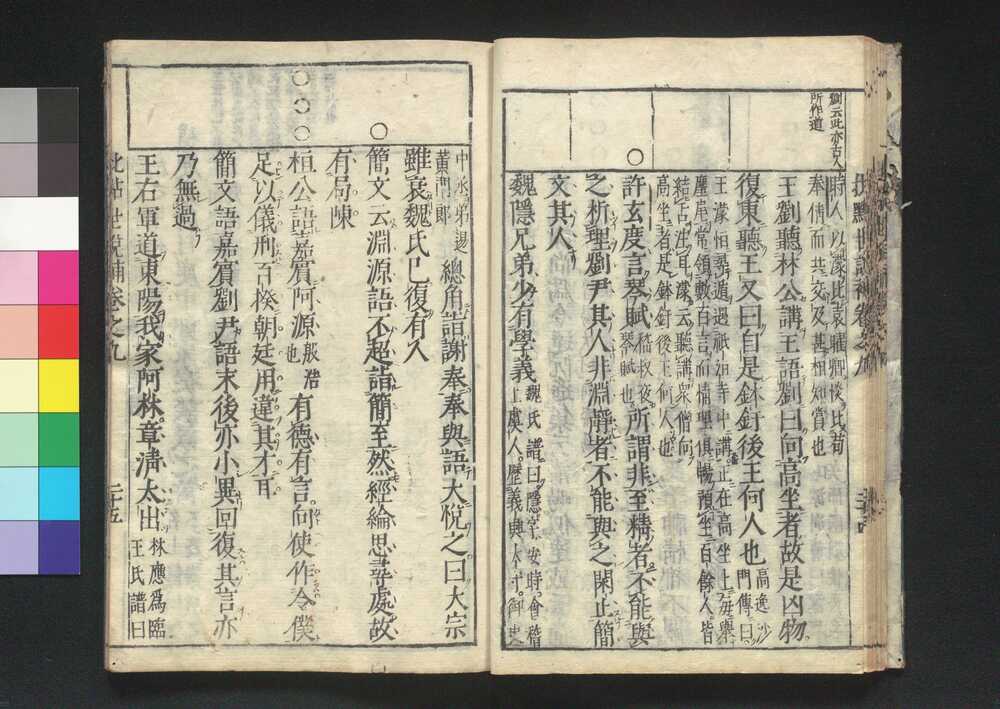 劉云此亦古人
所作道
世說補卷之九
時人以濛比袁曜卿惔比荀
奉倩而共交友甚相知賞也
王劉聽林公講王語劉曰向高坐者故是凶物
復東聽王又曰自是鉢釪後王何人也高逸沙門傳曰
王濛恒尋遁遇祇洹寺中講正在高坐上每舉
麈尾常領數百言而情理俱暢預坐百餘人皆
結舌注耳濛云聽講衆僧向
高坐者是鉢釪後王何人也
○許玄度言琴賦嵇叔夜琴賦也所謂非至精者不能與
之析理劉尹其人非淵靜者不能與之閑止簡
文其人
魏隱兄弟少有學義魏氏譜曰隱字安時會稽上虞人歷義興太守御史
中丞弟逷
黃門郎
總角詣謝奉奉與語大悅之曰大宗
雖衰魏氏已復有人
○簡文云淵源語不超詣簡至然經綸思尋處故
有局陳
○○○桓公語嘉賓阿源殷浩也有德有言向使作令僕
足以儀刑百揆朝廷用違其才耳
簡文語嘉賓劉尹語末後亦小異回復其言亦
乃無過
王右軍道東陽我家阿林章清太出林應為臨王氏譜曰
世說補卷之九
二十五